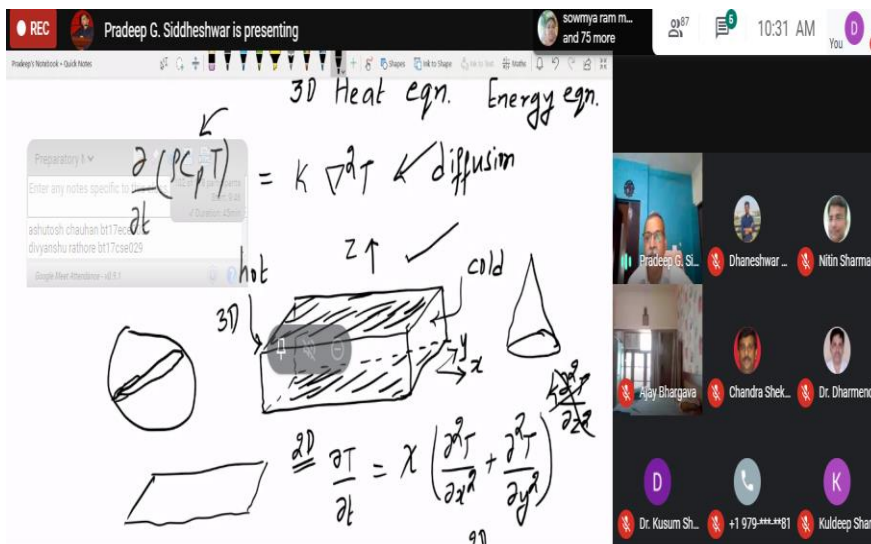 REC
Pradeep G. Siddheshwar is presenting
sowmya ram m...
and 75 more
87
5
10:31 AM
You
D
Pradeep's Notebook • Quick Notes
Shapes
Ink to Shape
Ink to Text
Maths
3D Heat eqn. Energy eqn.
Preparatory I
Enter any notes specific to this
∂/∂t (ρCpT) = K ∇²T ← diffusion
ashutosh chauhan bt17ece
divyanshu rathore bt17cse029
Google Meet Attendance - v0.5.1
z
hot
cold
3D
y
x
2D ∂T/∂t = χ (∂²T/∂x² + ∂²T/∂y²) + ∂²T/∂z²
2D
Pradeep G. Si...
Dhaneshwar ...
Nitin Sharma
Ajay Bhargava
Chandra Shek...
Dr. Dharmend
D
K
Dr. Kusum Sh...
+1 979-***-**81
Kuldeep Shar